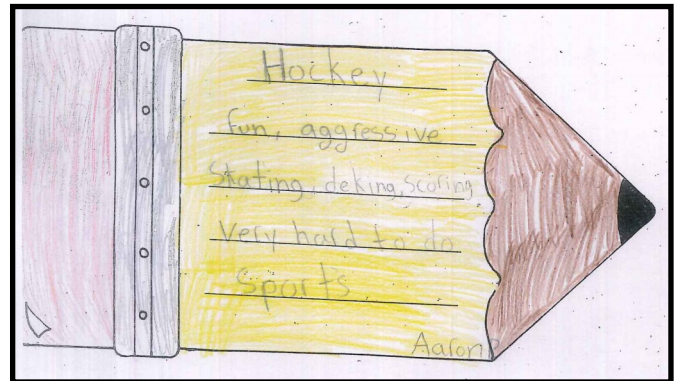 Hockey
fun, aggressive
Skating, deking, scoring
Very hard to do
Sports
Aaron